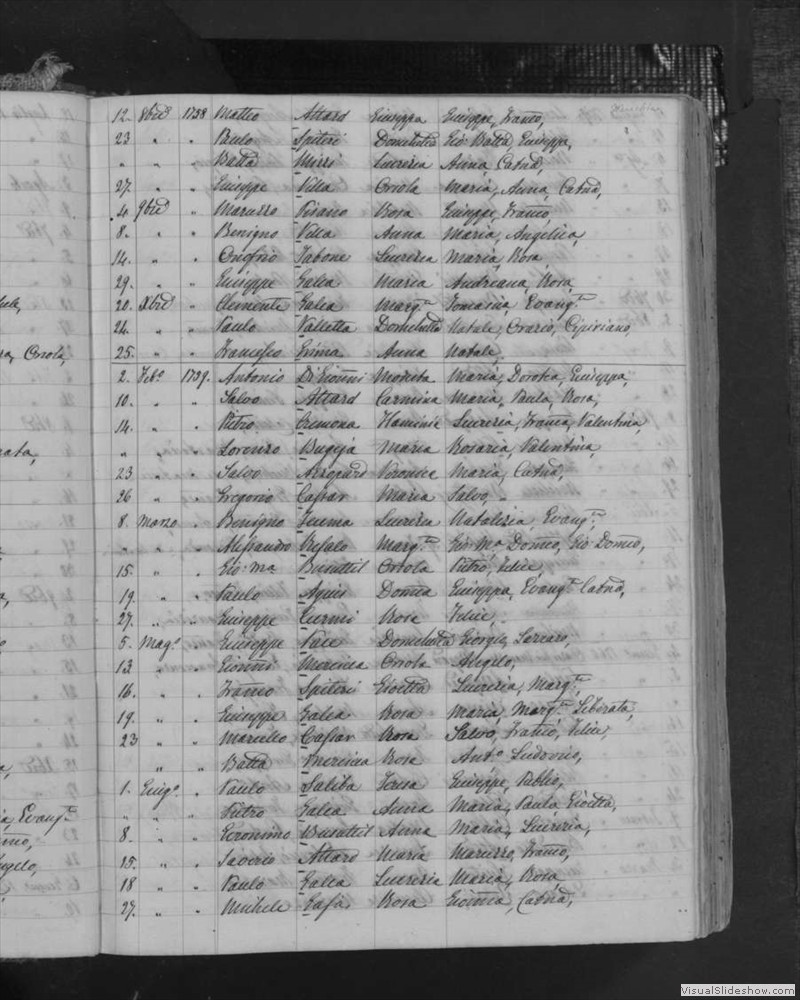 12. 8bre 1738 Matteo Attard Giuseppa Giuseppe, Franco,
23 " " Paulo Spiteri Domenchetta Gio Batta, Giuseppa,
" " " Batta Mizzi Lucrezia Anna Catna,
27. " " Giuseppe Villa Orsola Maria, Anna, Catna,
4. 9bre " Maruzzo Pisano Rosa Giuseppe, Franco,
8. " " Benigno Villa Anna Maria, Angelica,
14. " " Onofrio Tabone Lucrezia Maria, Rosa,
29. " " Giuseppe Galea Maria Andreana, Rosa,
20. Xbre " Clemente Galea Margta Tomasina, Evangta
24. " " Paulo Valletta Domenchetta Natale, Orazio, Cipiriano,
25. " " Francesco Grima Anna Natale,
2. Febo 1739. Antonio Di Gionni Modesta Maria, Dorotea, Giuseppa,
10. " " Salvo Attard Carmina Maria, Paula, Rosa,
14. " " Pietro Cremona Flaminia Lucrezia, Franca, Valentina,
" " " Lorenzo Bugeja Maria Rosaria, Valentina,
23 " " Salvo Azzopard Veronica Maria, Catna,
26 " " Gregorio Caffar Maria Salvo,
8. Marzo " Benigno Lucrezia Natalizia, Evangta
" " " Alessandro Refalo Margta Gio: Ma Domco, Gio Domco,
15. " " Gio: Ma Busuttil Orsola Pietro, Felice
19. " " Paulo Agius Domca Giuseppa, Evangta Catna,
27. " " Giuseppe Curmi Rosa Felice,
5. Mago " Giuseppe Pace Domenchetta Giorgio, Lazzaro,
13. " " Gionni Mercieca Orsola Angelo,
16. " " Franco Spiteri Gioetta Lucrezia, Margta
19. " " Giuseppe Galea Rosa Maria, Margta Liberata,
23 " " Marcello Caffar Rosa Salvo, Franco, Felice,
" " Batta Mercieca Rosa Anto Ludovico,
1. Giugo " Paulo Saliba Teresa Giuseppe, Publio,
" " " Pietro Galea Anna Maria, Paula, Gioetta,
8. " " Geronimo Busuttil Anna Maria, Lucrezia,
15. " " Saverio Attard Maria Maruzzo, Franco,
18 " " Paulo Galea Lucrezia Maria, Rosa,
27. " " Michele Rosa Gionna, Catna,
VisualSlideshow.com